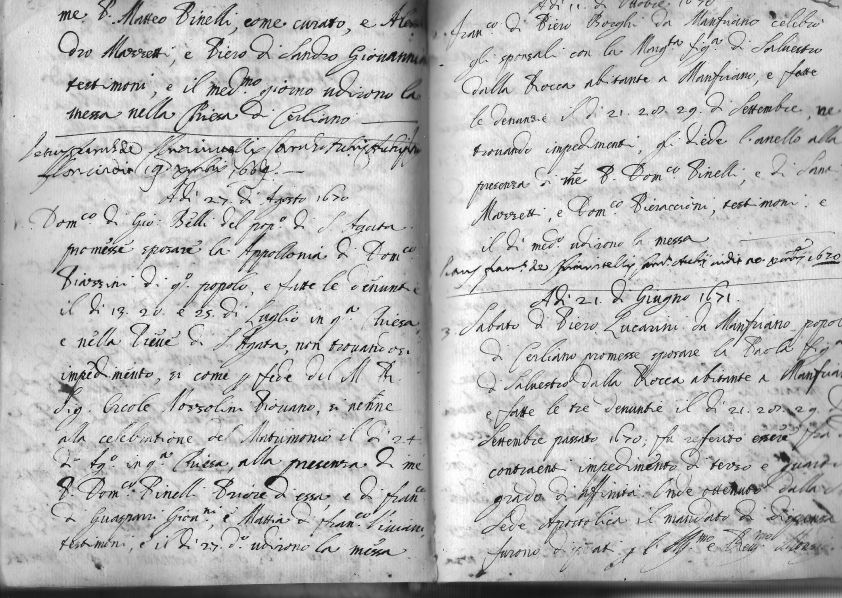 me P. Matteo Pinelli, come curato, e
dro Mazzetti, e Piero di Sandro Giovanni
testimoni, e il med.mo giorno udirono la
messa nella Chiesa di Cerliano
1669.
Adi 27. di Agosto 1670
Dom.co di Gio: Belli del pop.o di S. Agata
promesse sposare la Appollonia di Dom.co
di q.o popolo, e fatte le denuntie
il di 13. 20. e 25. di Luglio in q.a Chiesa
e nella Pieve di S. Agata, non trovandosi
impedimento, si come p fede del M. R.
Sig. Ercole Nozzolini Piovano, si venne
alla celebratione del Matrimonio il di 24
di Ag.o in q.a Chiesa, alla presenza di me
P. Dom.co Pinelli Priore di essa e di Fran.co
di Guaspari Giov.ni, e Mattia di Fran.co
testimoni, e il di 27. d.o udirono la messa
Adi 11. di Ottobre 1670
Fran.co di Piero Borghi da Manfriano celebrò
gli sponsali con la Marg.ta fig.a di Salvestro
dalla Rocca abitante a Manfriano, e fatte
le denunzie il di 21. 28. 29. di Settembre, ne
trovando impedimenti, gli diede l'anello alla
presenza di me P. Dom.co Pinelli, e di
Mazzetti, e Dom.co Pieraccioni, testimoni, e
il di med.o udirono la messa
1670
Adi 21. di Giugno 1671.
3 Sabato di Piero Lucarini da Manfriano popol
di Cerliano promesse sposare la Paola fig.a
di Salvestro dalla Rocca abitante a Manfrian
e fatte le tre denuntie il di 21. 28. 29. d
Settembre passato 1670, fu referito essere fra
contraenti impedimento di terzo e quarto
grado di affinità. Onde ottenuto dalla
Sede Apostolica il mandato di dispensa
furono dispensati p l' Ill.mo e Rev.mo